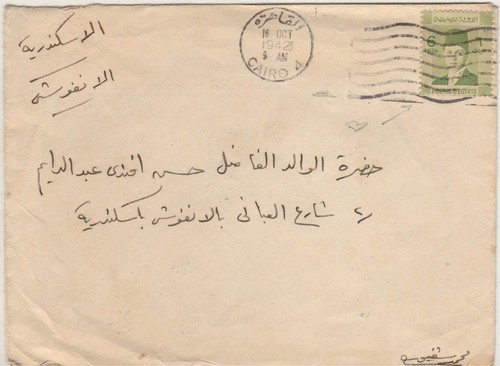 الاسكندرية
الانفوشى
القاهرة
16 OCT
1942
9 AM
CAIRO 4
6
POSTES D'EGYPTE
حضرة الوالد الفاضل حسن افندى عبد الدايم
شارع العبانى بالانفوشى باسكندرية